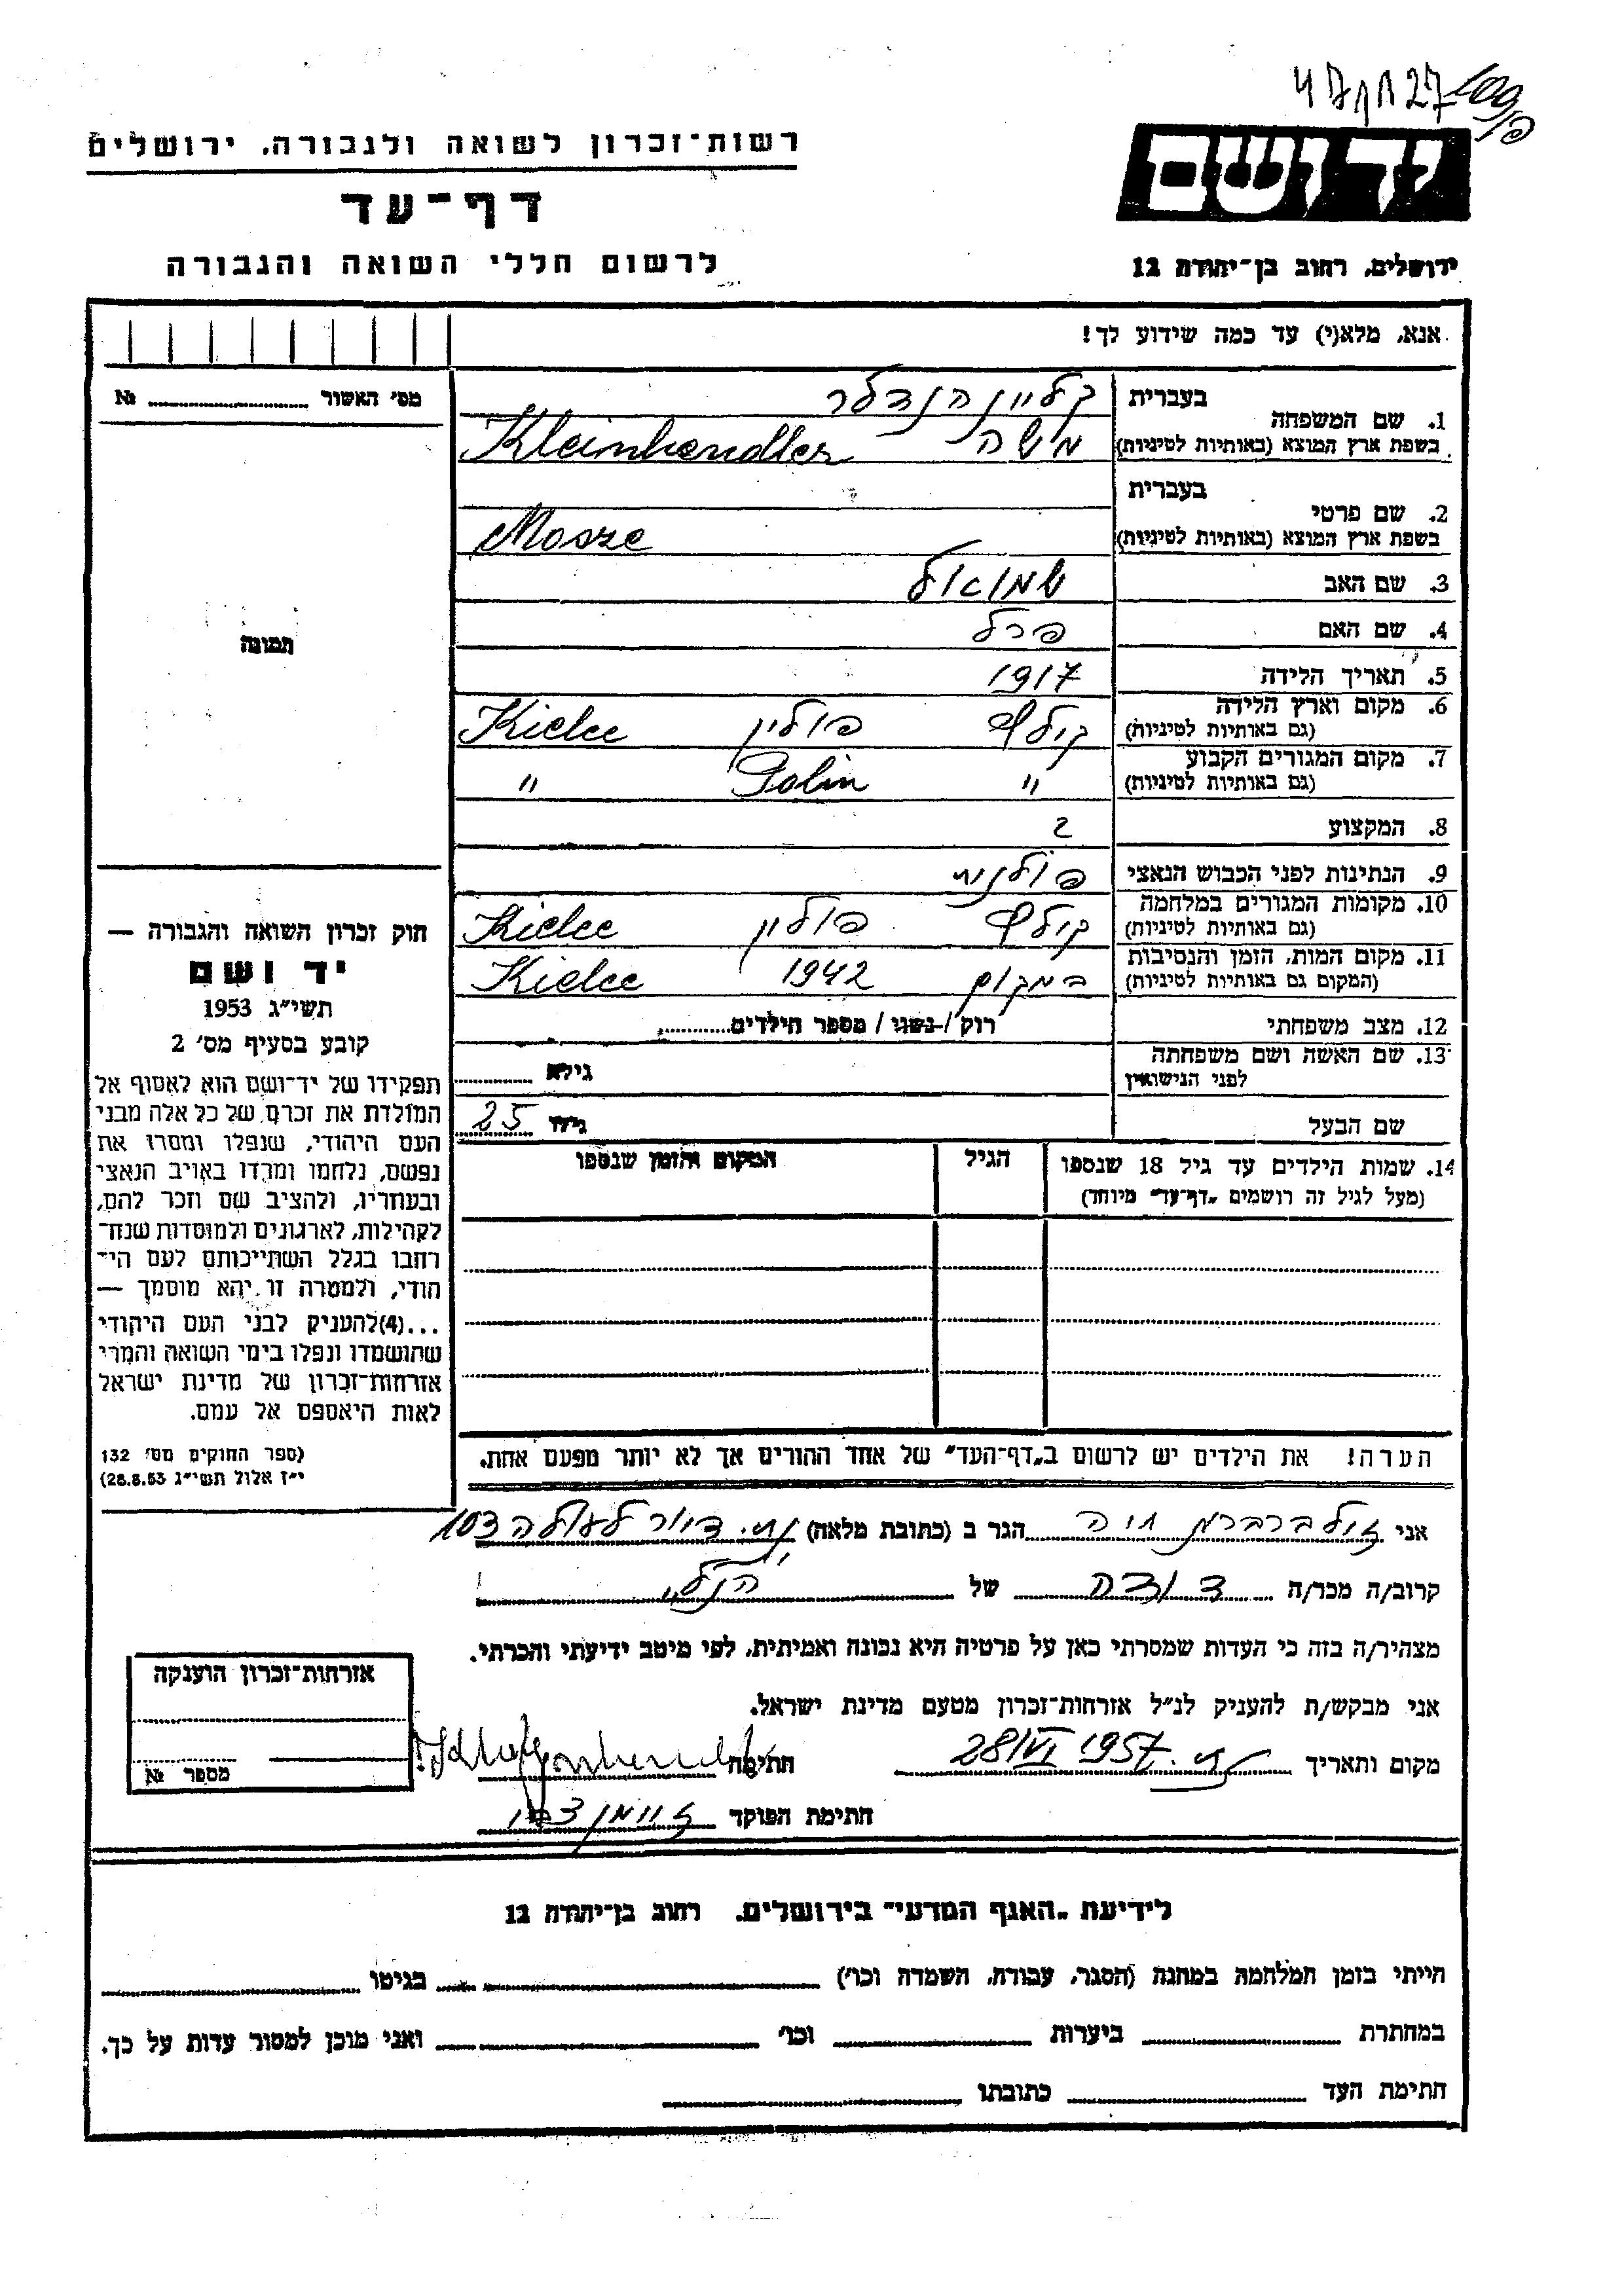 רשות־זכרון לשואה ולגבורה, ירושלים
דף־עד
לרשום חללי השואה והגבורה
יד ושם
ירושלים, רחוב בן־יהודה 12
אנא, מלא(י) עד כמה שידוע לך!
מס' האשור № ........
תמונה
1. שם המשפחה בעברית קליינהנדלר
בשפת ארץ המוצא (באותיות לטיניות) משה Kleinhendler
2. שם פרטי בעברית
בשפת ארץ המוצא (באותיות לטיניות) Mosze
3. שם האב שמואל
4. שם האם פרל
5. תאריך הלידה 1917
6. מקום וארץ הלידה (גם באותיות לטיניות) פולין Kielce
7. מקום המגורים הקבוע (גם באותיות לטיניות) " Polin "
8. המקצוע
9. הנתינות לפני הכבוש הנאצי פולנית
10. מקומות המגורים במלחמה (גם באותיות לטיניות) פולין Kielce
11. מקום המות, הזמן והנסיבות (המקום גם באותיות לטיניות) במקום 1942 Kielce
12. מצב משפחתי רוק / נשוי / מספר הילדים........
13. שם האשה ושם משפחתה לפני הנישואין גילא ........
שם הבעל גילו 25
14. שמות הילדים עד גיל 18 שנספו (מעל לגיל זה רושמים „דף־עד" מיוחד) הגיל המקום והזמן שנספו
הערה! את הילדים יש לרשום ב„דף־העד" של אחד ההורים אך לא יותר מפעם אחת.
חוק זכרון השואה והגבורה —
יד ושם
תשי"ג 1953
קובע בסעיף מס' 2
תפקידו של יד־ושם הוא לאסוף אל
המולדת את זכרם של כל אלה מבני
העם היהודי, שנפלו ומסרו את
נפשם, נלחמו ומרדו באויב הנאצי
ובעוזריו, ולהציב שם וזכר להם,
לקהילות, לארגונים ולמוסדות שנח־
רבו בגלל השתייכותם לעם הי־
הודי, ולמטרה זו יהא מוסמך —
...(4)להעניק לבני העם היהודי
שהושמדו ונפלו בימי השואה והמרי
אזרחות־זכרון של מדינת ישראל
לאות היאספם אל עמם.
(ספר החוקים מס' 132
י"ז אלול תשי"ג 28.8.53)
אני זילברברג חיה הגר ב (כתובת מלאה) 103
קרוב/ה מכר/ה דודה של הנ"ל
מצהיר/ה בזה כי העדות שמסרתי כאן על פרטיה היא נכונה ואמיתית, לפי מיטב ידיעתי והכרתי.
אני מבקש/ת להעניק לנ"ל אזרחות־זכרון מטעם מדינת ישראל.
מקום ותאריך 28/VI 1957 חתימה
חתימת הפוקד
אזרחות־זכרון הוענקה
מספר №
לידיעת „האגף המדעי" בירושלים, רחוב בן־יהודה 12
הייתי בזמן המלחמה במחנה (הסגר, עבודה, השמדה וכו') ........ בגיטו ........
במחתרת ........ ביערות ........ וכו' ........ ואני מוכן למסור עדות על כך.
חתימת העד ........ כתובתו ........